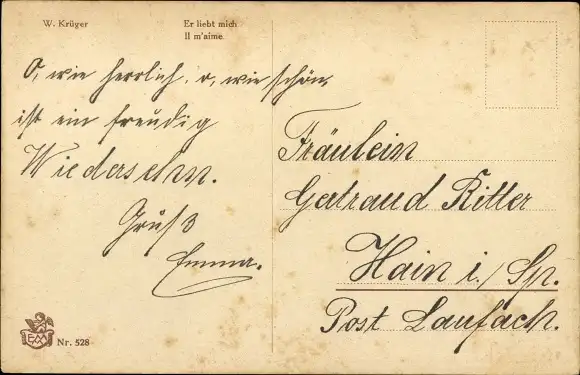 W. Krüger
Er liebt mich
Il m'aime
O, wie herrlich, o, wie schön,
ist ein freudig
Wiedersehn.
Gruß
Emma.
Fräulein
Gertraud Ritter
Hain i./Sp.
Post Laufach.
EAM
Nr. 528